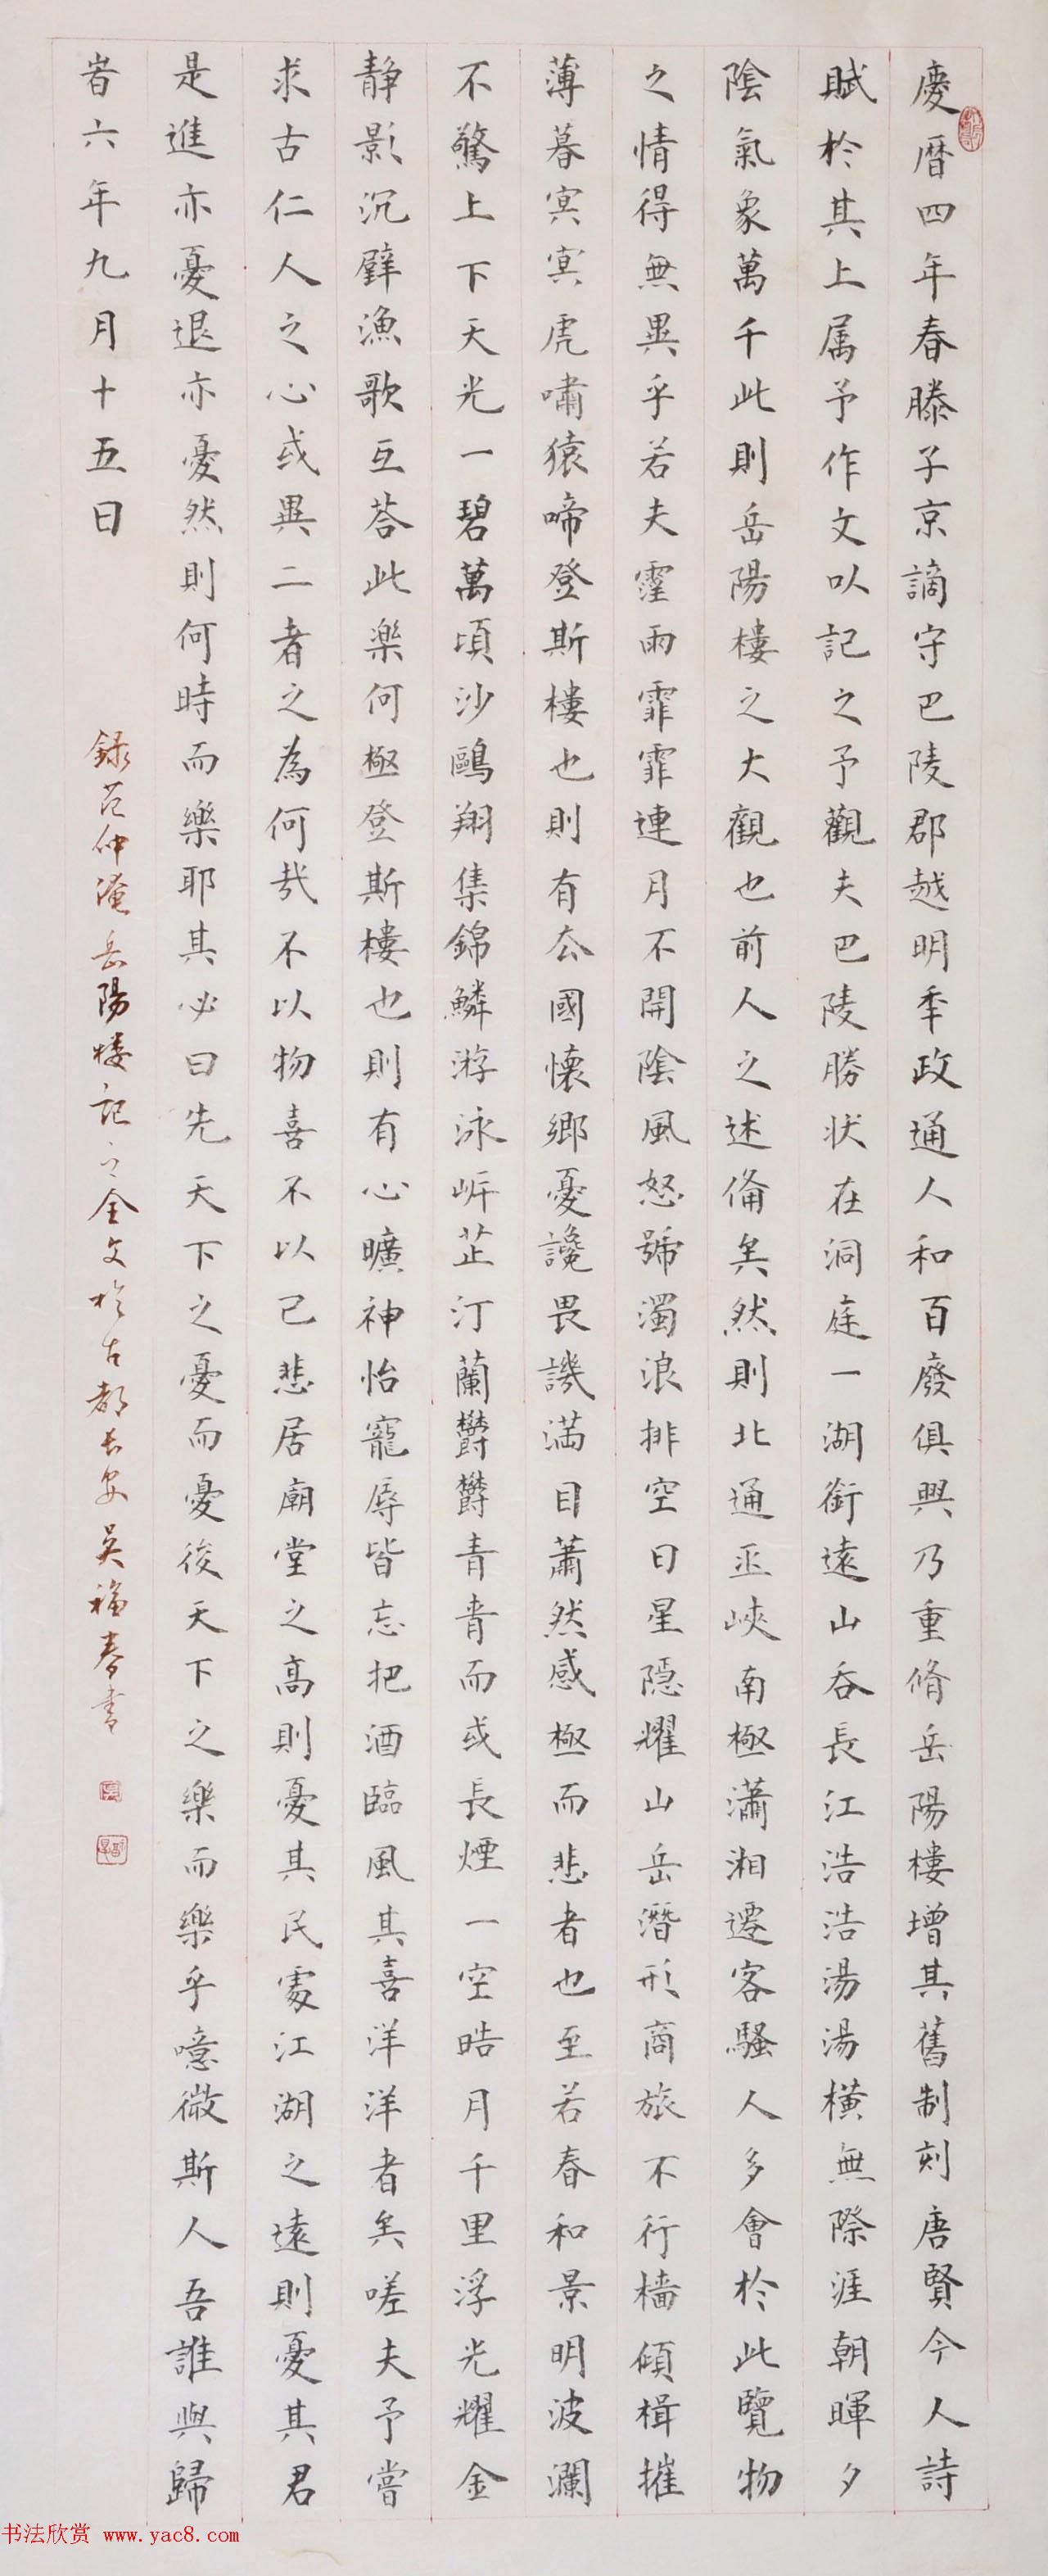 慶曆四年春滕子京謫守巴陵郡越明年政通人和百廢俱興乃重脩岳陽樓增其舊制刻唐賢今人詩
賦於其上属予作文以記之予觀夫巴陵勝状在洞庭一湖銜遠山吞長江浩浩湯湯橫無際涯朝暉夕
陰氣象萬千此則岳陽樓之大觀也前人之述俻矣然則北通巫峽南極瀟湘遷客騷人多會於此覽物
之情得無異乎若夫霪雨霏霏連月不開陰風怒號濁浪排空日星隱耀山岳潛形商旅不行檣傾楫摧
薄暮冥冥虎嘯猿啼登斯樓也則有去國懷鄉憂讒畏譏滿目蕭然感極而悲者也至若春和景明波瀾
不驚上下天光一碧萬頃沙鷗翔集錦鱗游泳岸芷汀蘭欝欝青青而或長煙一空皓月千里浮光耀金
静影沉璧漁歌互荅此樂何極登斯樓也則有心曠神怡寵辱皆忘把酒臨風其喜洋洋者矣嗟夫予嘗
求古仁人之心或異二者之為何哉不以物喜不以己悲居廟堂之高則憂其民處江湖之遠則憂其君
是進亦憂退亦憂然則何時而樂耶其必曰先天下之憂而憂後天下之樂而樂乎噫微斯人吾誰與歸
旹六年九月十五日
録范仲淹岳陽楼記之全文於古都长安吴福春书
书法欣赏 www.yac8.com